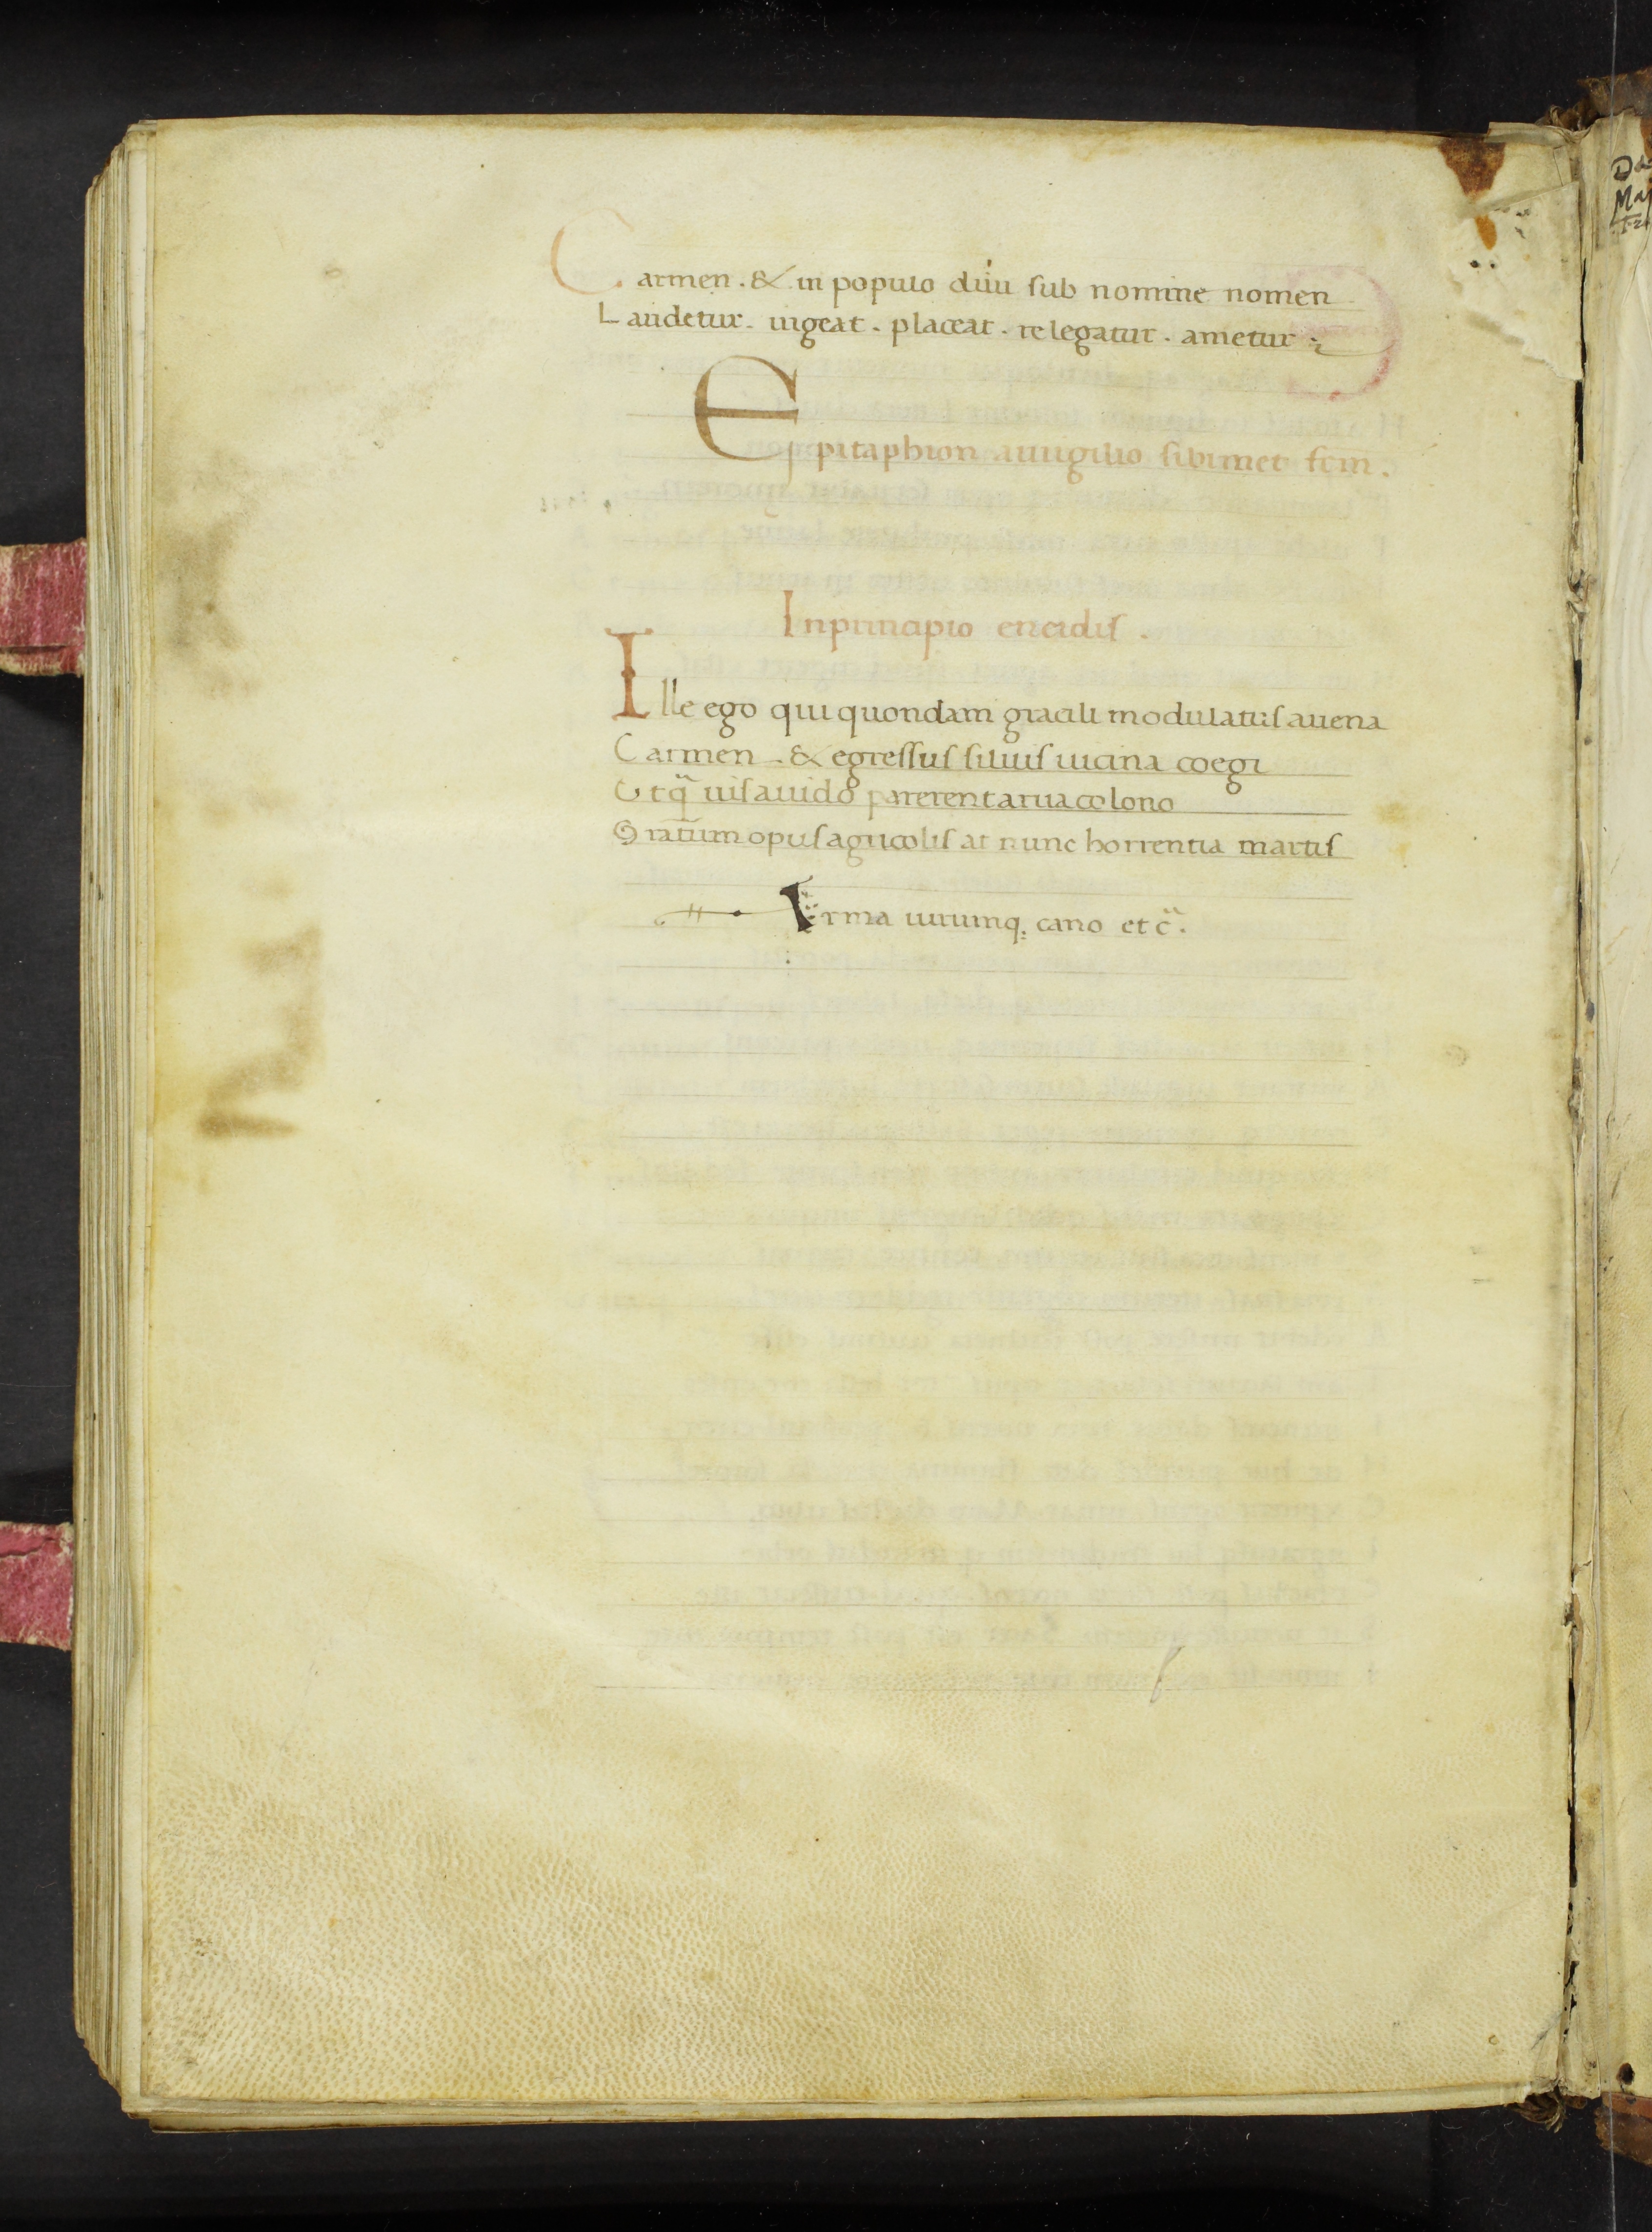 Carmen . & in populo diuu sub nomine nomen
Laudetur . uigeat . placeat . relegatur . ametur ;
Epitaphion auuirgilio sibimet fcm .
Inprincipio eneidis .
Ille ego qui quondam gracili modulatus auena
Carmen . & egressus siluis uicina coegi
Ut q̄ uis auido parerent arua colono
Gratum opus agricolis at nunc horrentia martis
Arma uirumq; cano et c̄ .